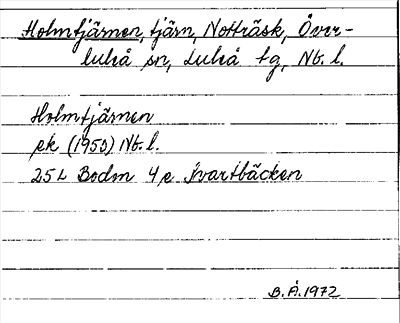 Holmtjärnen, tjärn, Notträsk, Över-
luleå sn, Luleå tg, Nb. l.
Holmtjärnen
ek (1950) Nb. l.
25L Bodn 4e Svartbäcken
B.Å.1972